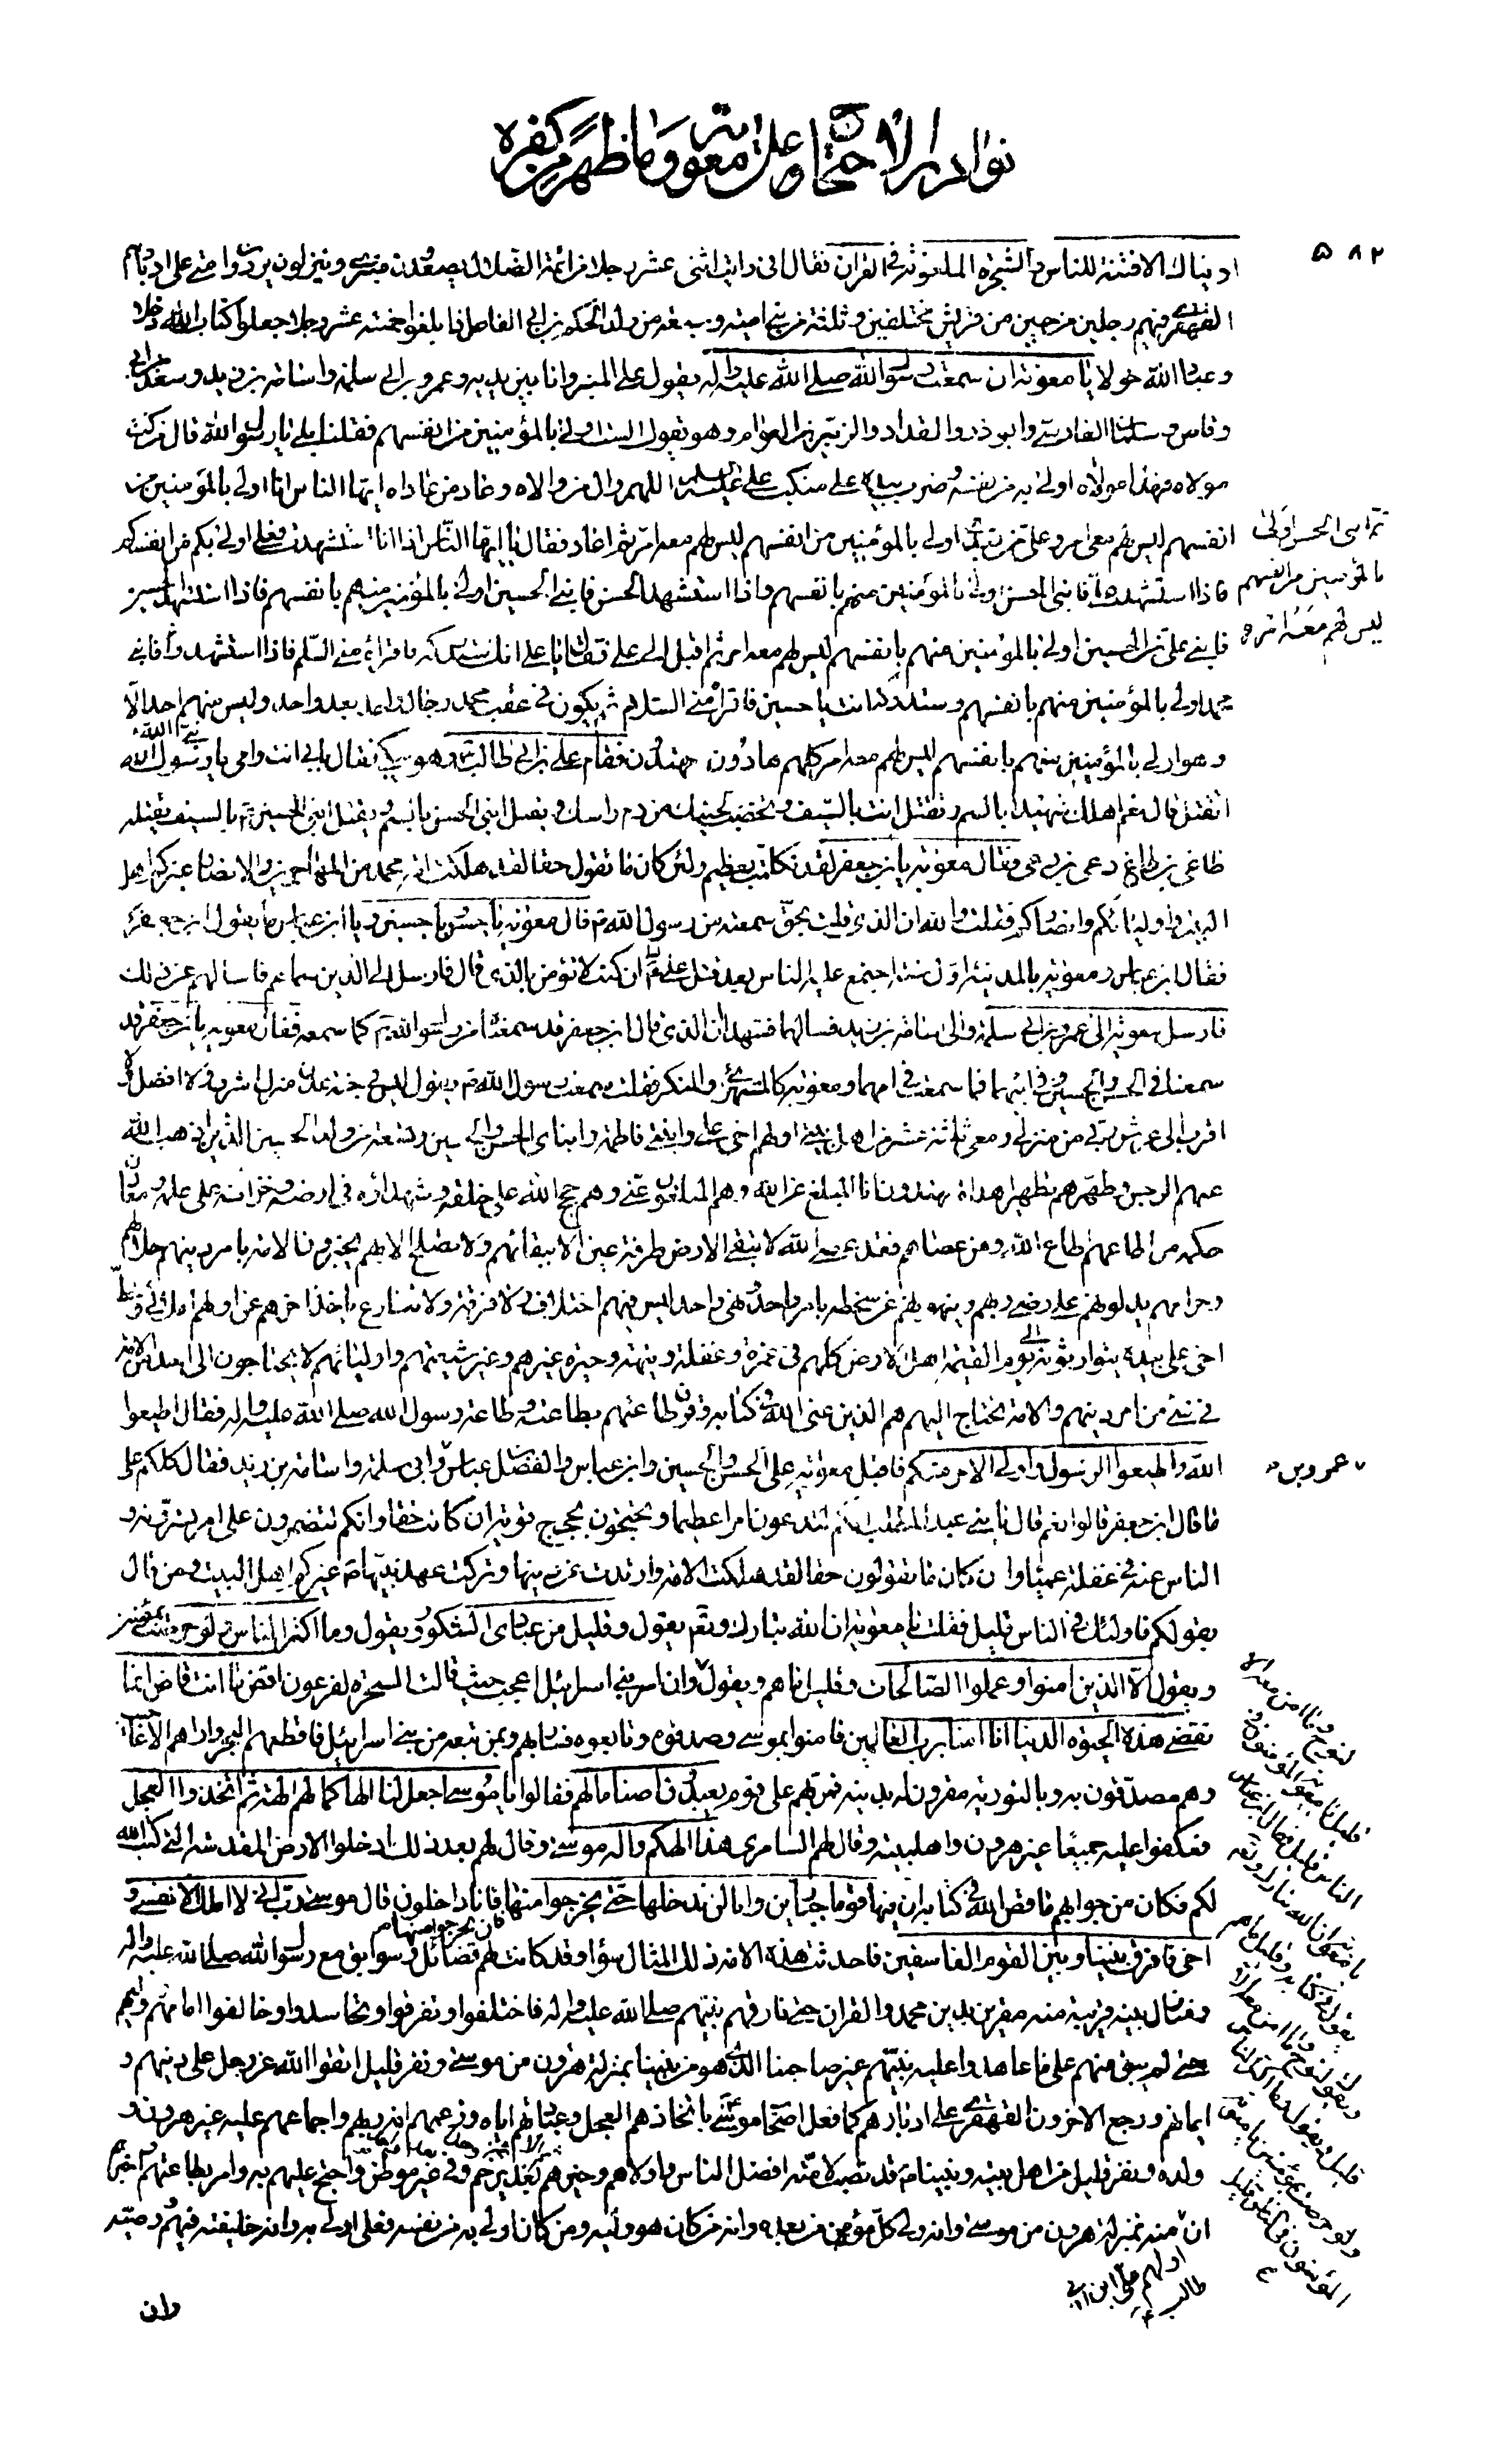 نوادر الاحتجاج على معوية وما ظهر من كفره
٥٨٢
اريناك الا فتنة للناس والشجرة الملعونة في القران فقال اني رايت اثنى عشر رجلا من ائمة الضلال يصعدون منبري وينزلون يردون امتي على ادبارهم
القهقرى فيهم رجلين من حيين من قريش مختلفين وثلثة من بني امية وسبعة من ولد الحكم بن ابي العاص اذا بلغوا خمسة عشر رجلا جعلوا كتاب الله دخلا
وعباد الله خولا يا معوية اني سمعت رسول الله صلى الله عليه واله يقول على المنبر وانا بين يديه وعمرو بن ابي سلمة واسامة بن زيد وسعد بن ابي
وقاص وسلمان الفارسي وابو ذر والمقداد والزبير بن العوام وهو يقول الست اولى بالمؤمنين من انفسهم فقلنا بلى يا رسول الله قال من كنت
مولاه فهذا مولاه اولى به من نفسه وضرب بيده على منكب علي عليه السلام اللهم وال من والاه وعاد من عاداه ايها الناس انا اولى بالمؤمنين من
انفسهم ليس لهم معي امر وعلي من بعدي اولى بالمؤمنين من انفسهم ليس لهم معه امر ثم اعاد فقال يا ايها الناس اذا انا استشهدت فعلي اولى بكم من انفسكم
ثم ابني الحسن اولى
بالمؤمنين من انفسهم
ليس لهم معه امر
فاذا استشهد علي فابني الحسن اولى بالمؤمنين منهم بانفسهم واذا استشهد الحسن فابني الحسين اولى بالمؤمنين منهم بانفسهم فاذا استشهد الحسين
فابني علي بن الحسين اولى بالمؤمنين منهم بانفسهم ليس لهم معه امر ثم اقبل الى علي فقال يا علي انك ستدركه فاقرأه مني السلم فاذا استشهد فابنه
محمد اولى بالمؤمنين منهم بانفسهم وستدركه انت يا حسين فاقرأه مني السلام ثم يكون في عقب محمد رجال واحد بعد واحد وليس منهم احد الا
وهو اولى بالمؤمنين منهم بانفسهم ليس لهم معه امر كلهم هادون مهتدون فقام علي بن ابي طالب وهو يبكي فقال بابي انت وامي يا رسول الله
اتقتل قال نعم اهلك شهيدا بالسم وتقتل انت بالسيف وتخضب لحيتك من دم راسك ويقتل ابني الحسن بالسم ويقتل ابني الحسين بالسيف يقتله
طاغي بن طاغ دعي بن دعي فقال معوية يا بن جعفر لقد تكلمت بعظيم ولئن كان ما تقول حقا لقد هلكت امة محمد من المهاجرين والانصار غيركم اهل
البيت واوليائكم وانصاركم فقلت والله ان الذي قلت بحق سمعته من رسول الله قال معوية يا حسن ويا حسين ويا ابن عباس ما يقول ابن جعفر
فقال ابن عباس ومعوية بالمدينة اول سنة اجتمع عليه الناس بعد قتل علي ان كنت لا تؤمن بالذي قال فارسل الى الذين سماهم فاسالهم عن ذلك
فارسل معوية الى عمرو بن ابي سلمة والى اسامة بن زيد فسالهما فشهدا ان الذي قال ابن جعفر قد سمعناه من رسول الله كما سمعه فقال معوية يا بن جعفر قد
سمعنا في الحسن والحسين وفي ابيهما فما سمعت في امهما ومعوية كالمستهزئ والمنكر فقلت سمعت رسول الله يقول ليس في جنة عدن منزل اشرف ولا افضل ولا
اقرب الى عرش ربي من منزلي ومعي ثلثة عشر من اهل بيتي اولهم اخي علي وابنتي فاطمة وابناي الحسن والحسين وتسعة من ولد الحسين الذين اذهب الله
عنهم الرجس وطهرهم تطهيرا هداة مهتدون انا المبلغ عن الله وهم المبلغون عني وهم حجج الله على خلقه وشهداؤه في ارضه وخزانه على علمه ومعادن
حكمه من اطاعهم اطاع الله ومن عصاهم فقد عصى الله لا تبقى الارض طرفة عين الا ببقائهم ولا تصلح الا بهم يخبرون الامة بامر دينهم حلالهم
وحرامهم يدلونهم على رضى ربهم وينهونهم عن سخطه بامر واحد ونهي واحد ليس فيهم اختلاف ولا فرقة ولا تنازع ياخذ اخرهم عن اولهم املائي وخط
اخي علي بيده يتوارثونه الى يوم القيمة اهل الارض كلهم في غمرة وغفلة وتيهة وحيرة غيرهم وغير شيعتهم واوليائهم لا يحتاجون الى احد من الامة
في شئ من امر دينهم والامة تحتاج اليهم هم الذين عنى الله في كتابه وقرن طاعتهم بطاعته وطاعة رسول الله صلى الله عليه واله فقال اطيعوا
الله واطيعوا الرسول واولي الامر منكم فاقبل معوية على الحسن والحسين وابن عباس والفضل بن عباس وابي سلمة واسامة بن زيد فقال كلكم على
عمرو بن
ما قال ابن جعفر قالوا نعم قال يا بني عبد المطلب انكم لتدعون امرا عظيما وتحتجون بحجج قوية ان كانت حقا وانكم لتضمرون على امر تسرونه و
الناس عنه في غفلة عمياء ولئن كان ما تقولون حقا لقد هلكت الامة وارتدت عن دينها وتركت عهد نبيها غيركم اهل البيت ومن قال
بقولكم فاولئك في الناس قليل فقلت يا معوية ان الله تبارك وتعالى يقول وقليل من عبادي الشكور ويقول وما اكثر الناس ولو حرصت بمؤمنين
ويقول الا الذين امنوا وعملوا الصالحات وقليل ما هم ويقول وان امر بني اسرائيل اعجب حيث قالت السحرة لفرعون اقض ما انت قاض انما
تقضي هذه الحيوة الدنيا انا امنا برب العالمين فامنوا بموسى وصدقوه وتابعوه فسار بهم وبمن تبعه من بني اسرائيل فاقطعهم البحر واراهم الاعاجيب
وهم مصدقون به وبالتورية مقرون له بدينه فمر بهم على قوم يعبدون اصناما لهم فقالوا يا موسى اجعل لنا الها كما لهم الهة ثم اتخذوا العجل
فعكفوا عليه جميعا غير هرون واهل بيته وقال لهم السامري هذا الهكم واله موسى وقال لهم بعد ذلك ادخلوا الارض المقدسة التي كتب الله
لكم فكان من جوابهم ما قص الله في كتابه ان فيها قوما جبارين وانا لن ندخلها حتى يخرجوا منها فان يخرجوا منها فانا داخلون قال موسى رب اني لا املك الا نفسي و
اخي فافرق بيننا وبين القوم الفاسقين فاحتذت هذه الامة ذلك المثال سواء وقد كانت لهم فضائل وسوابق مع رسول الله صلى الله عليه واله
ومنازل بينة قريبة منه مقرين بدين محمد والقران حتى فارقهم نبيهم صلى الله عليه واله فاختلفوا وتفرقوا وتحاسدوا وخالفوا امامهم ووليهم
حتى لم يبق منهم على ما عاهدوا عليه نبيهم غير صاحبنا الذي هو من نبينا بمنزلة هرون من موسى ونفر قليل اتقوا الله عز وجل على دينهم و
ايمانهم ورجع الاخرون القهقرى على ادبارهم كما فعل اصحاب موسى باتخاذهم العجل وعبادتهم اياه وزعمهم انه ربهم واجماعهم عليه غير هرون و
ولده ونفر قليل من اهل بيته ونبينا قد نصب لامته افضل الناس واولاهم وخيرهم بغدير خم وفي غير موطن واحتج عليهم به وامر بطاعتهم واخبرهم
ان منه بمنزلة هرون من موسى وانه ولي كل مؤمن من بعده وانه من كان هو وليه ومن كان اولى به من نفسه فعلي اولى به وانه خليفته فيهم ووصيه
اولهم علي ابن ابي
طالب
وان